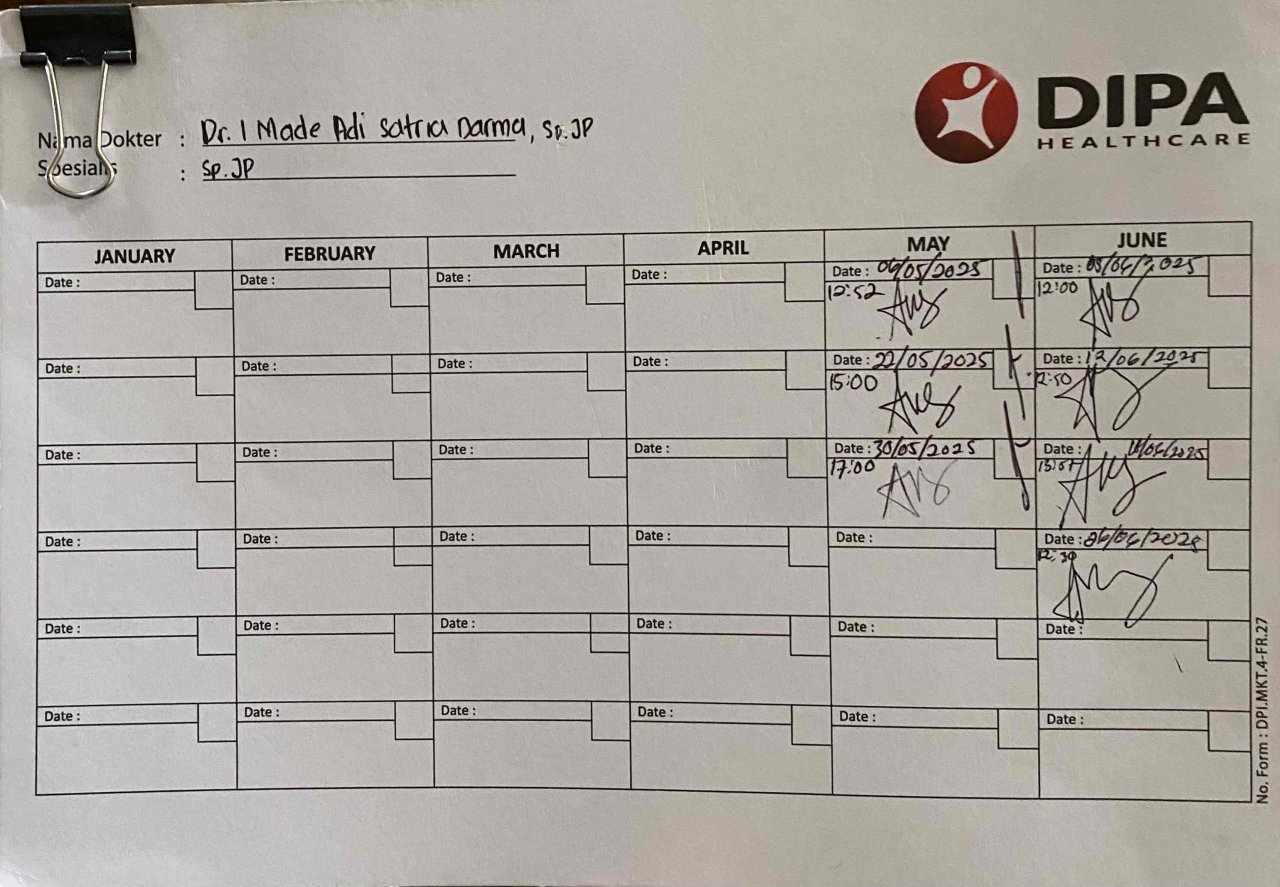 DIPA
HEALTHCARE
Nama Dokter : Dr. I Made Adi Satria Darma, Sp.JP
Spesialis : Sp.JP
JANUARY FEBRUARY MARCH APRIL MAY JUNE
Date : Date : Date : Date : Date : 06/05/2025 Date : 05/06/2025
12:52 12:00
Date : Date : Date : Date : Date : 22/05/2025 Date : 12/06/2025
15:00 12:50
Date : Date : Date : Date : Date : 30/05/2025 Date : /06/2025
17:00
Date : Date : Date : Date : Date : Date : 26/06/2025
12:30
Date : Date : Date : Date : Date : Date :
Date : Date : Date : Date : Date : Date :
No. Form : DPI.MKT.4-FR.27